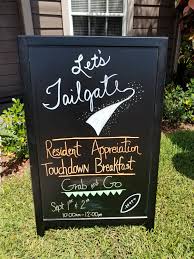 Let's
Tailgate
Resident Appreciation
Touchdown Breakfast
Grab and Go
Sept 1st & 2nd
10:00am - 12:00pm